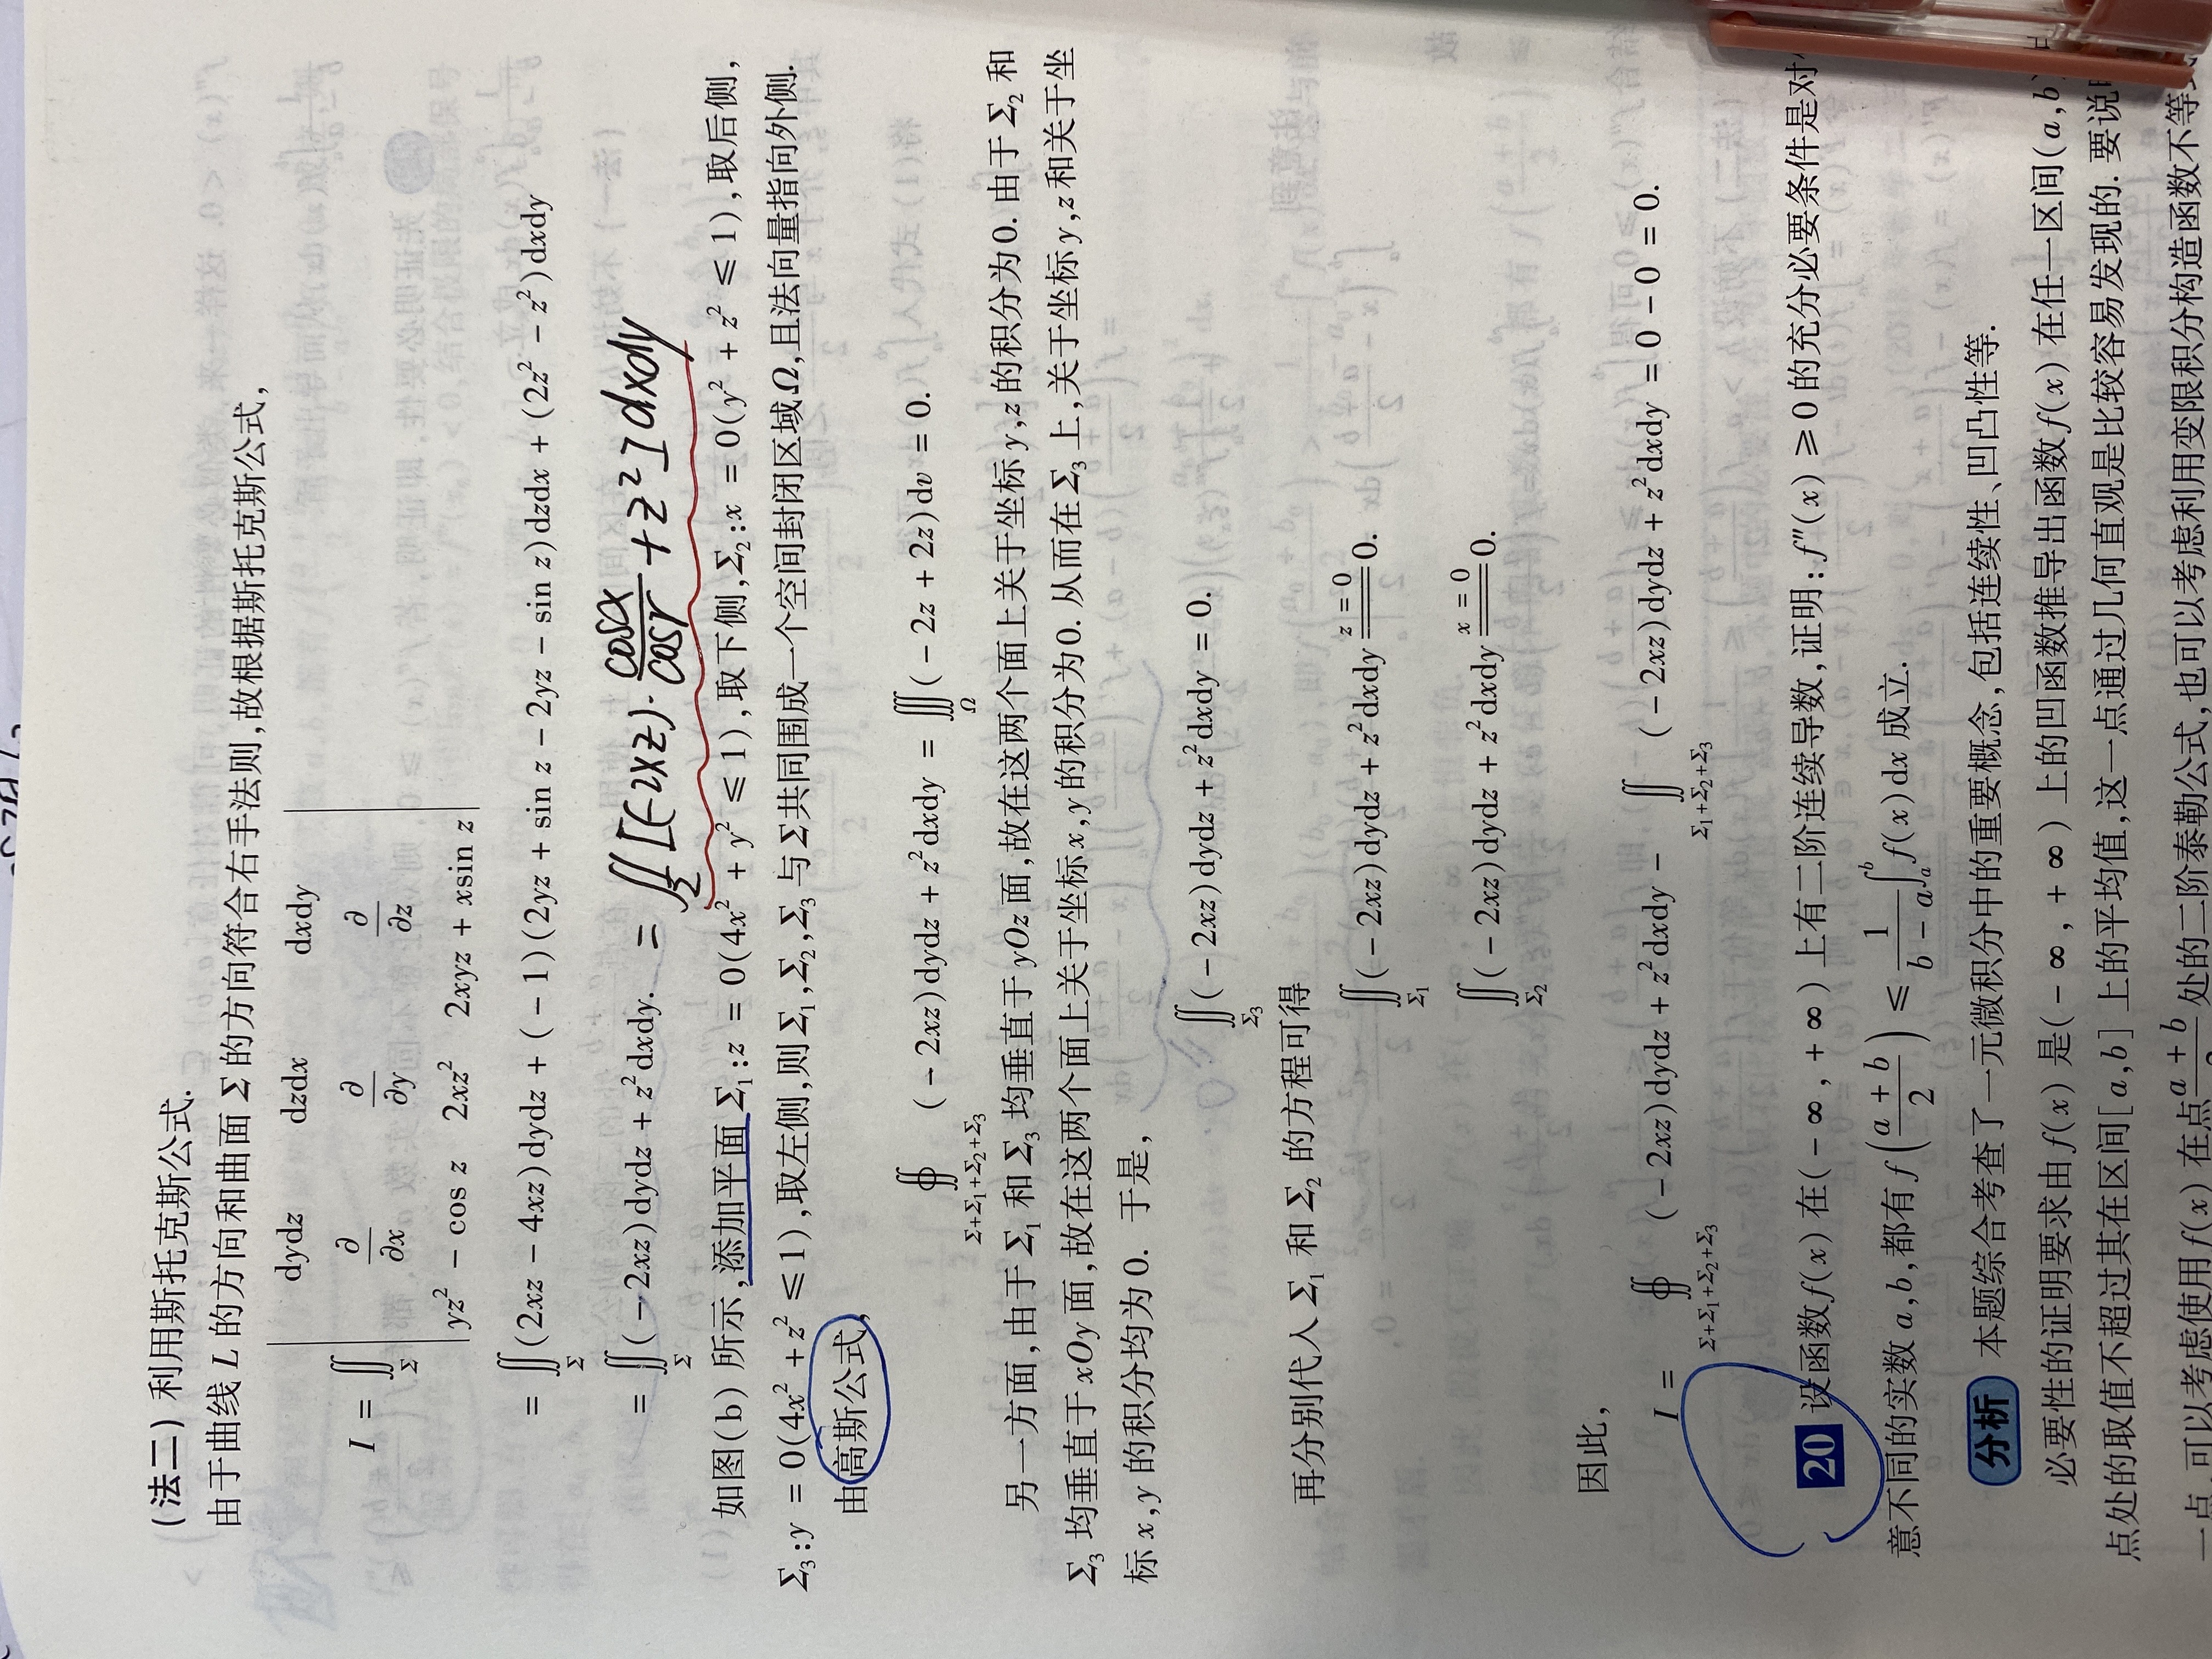 (法二) 利用斯托克斯公式.
由于曲线 L 的方向和曲面 Σ 的方向符合右手法则,故根据斯托克斯公式,
I = ∬_Σ | dydz dzdx dxdy
∂/∂x ∂/∂y ∂/∂z
yz² - cos z 2xz² 2xyz + xsin z |
= ∬_Σ (2xz - 4xz)dydz + (-1)(2yz + sin z - 2yz - sin z)dzdx + (2z² - z²)dxdy
= ∬_Σ (-2xz)dydz + z²dxdy. = ∬_Σ [(-2xz)·cosα/cosr + z²]dxdy
如图(b) 所示,添加平面 Σ₁:z = 0(4x² + y² ≤ 1),取下侧,Σ₂:x = 0(y² + z² ≤ 1),取后侧,
Σ₃:y = 0(4x² + z² ≤ 1),取左侧,则 Σ₁,Σ₂,Σ₃ 与 Σ 共同围成一个空间封闭区域 Ω,且法向量指向外侧.
由高斯公式,
∯_{Σ+Σ₁+Σ₂+Σ₃} (-2xz)dydz + z²dxdy = ∭_Ω (-2z + 2z)dv = 0.
另一方面,由于 Σ₁ 和 Σ₃ 均垂直于 yOz 面,故在这两个面上关于坐标 y,z 的积分为 0. 由于 Σ₂ 和
Σ₃ 均垂直于 xOy 面,故在这两个面上关于坐标 x,y 的积分为 0. 从而在 Σ₃ 上,关于坐标 y,z 和关于坐
标 x,y 的积分均为 0. 于是,
∬_{Σ₃} (-2xz)dydz + z²dxdy = 0.
再分别代入 Σ₁ 和 Σ₂ 的方程可得
∬_{Σ₁} (-2xz)dydz + z²dxdy ==(z = 0)== 0.
∬_{Σ₂} (-2xz)dydz + z²dxdy ==(x = 0)== 0.
因此,
I = ∯_{Σ+Σ₁+Σ₂+Σ₃} (-2xz)dydz + z²dxdy - ∬_{Σ₁+Σ₂+Σ₃} (-2xz)dydz + z²dxdy = 0 - 0 = 0.
20 设函数 f(x) 在(-∞, +∞) 上有二阶连续导数,证明:f″(x) ≥ 0 的充分必要条件是对
意不同的实数 a,b,都有 f((a + b)/2) ≤ 1/(b - a) ∫_a^b f(x)dx 成立.
分析 本题综合考查了一元微积分中的重要概念,包括连续性、凹凸性等.
必要性的证明要求由 f(x) 是(-∞, +∞) 上的凹函数推导出函数 f(x) 在任一区间(a,b
点处的取值不超过其在区间[a,b] 上的平均值,这一点通过几何直观是比较容易发现的. 要说
一点,可以考虑使用 f(x) 在点 (a + b)/2 处的二阶泰勒公式,也可以考虑利用变限积分构造函数不等